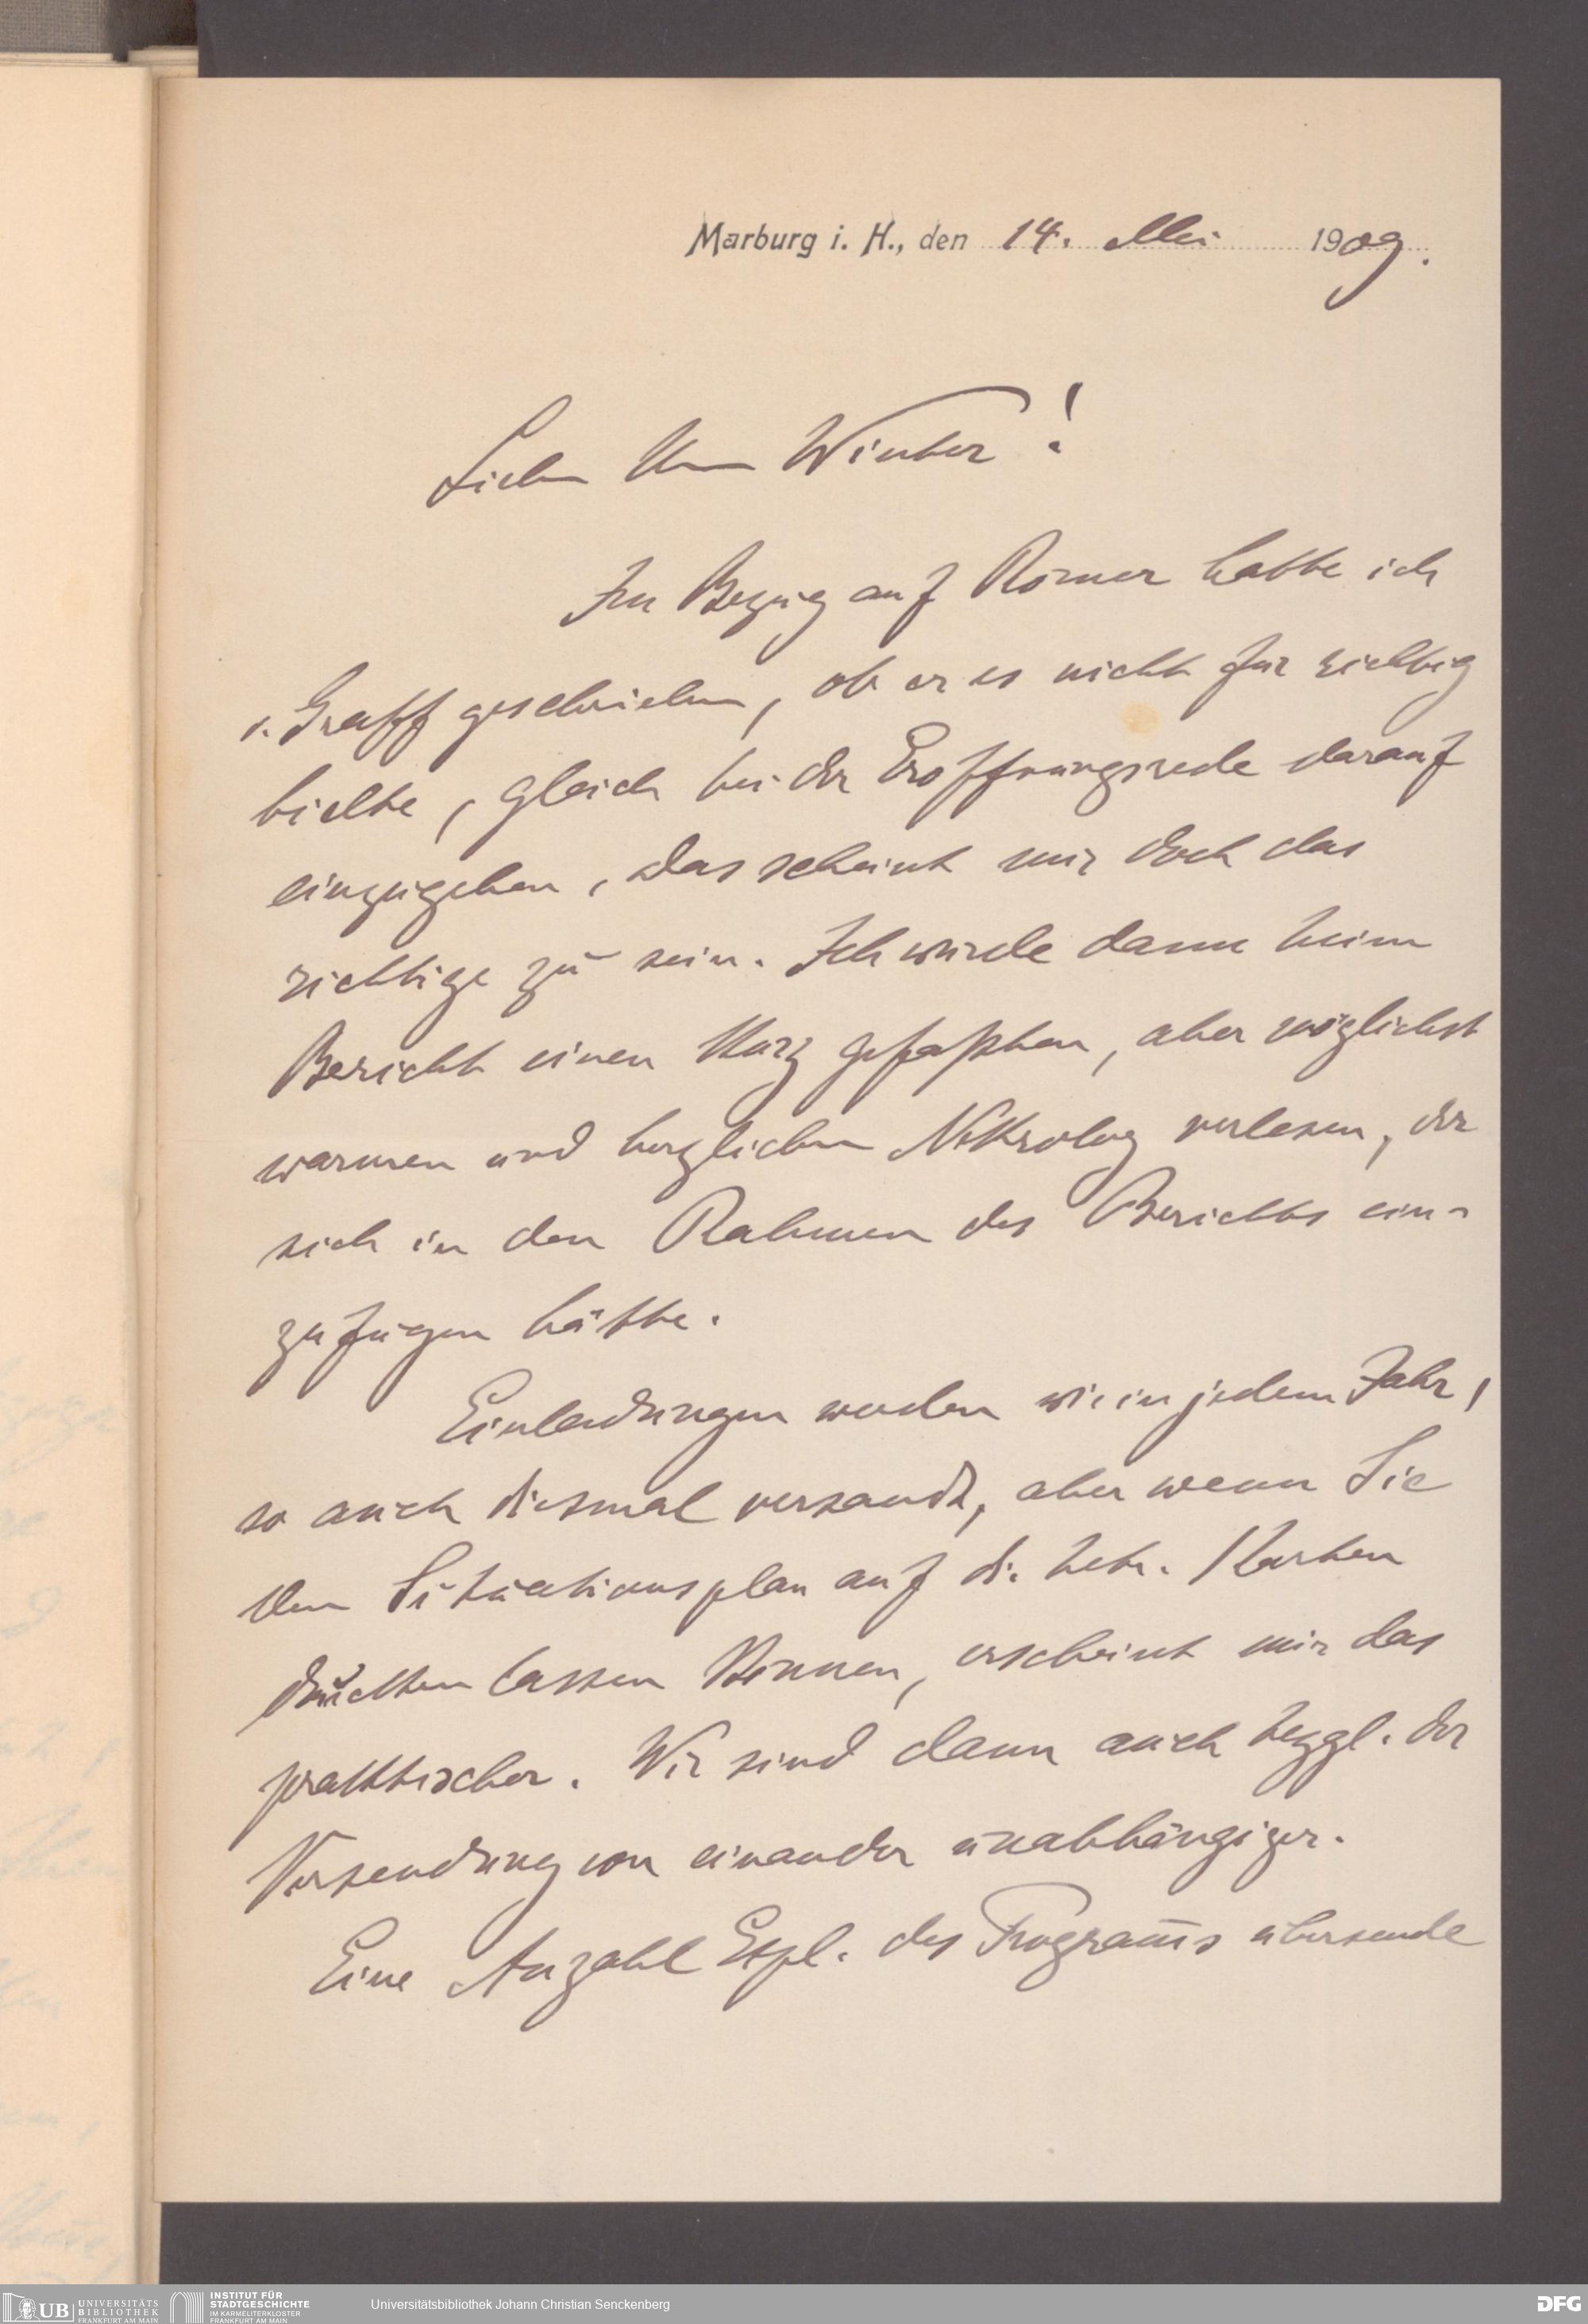 Marburg i. H., den 14. Mai 1909.
Lieber Herr Winter!
In Bezug auf Römer hatte ich
v. Graff geschrieben, ob er es nicht für richtig
hielte, gleich bei der Eröffnungsrede darauf
einzugehen, das scheint mir doch das
richtige zu sein. Ich würde dann beim
Bericht einen kurz gefaßten, aber möglichst
warmen und herzlichen Nekrolog verlesen, der
sich in den Rahmen des Berichts ein-
zufügen hätte.
Einladungen werden wie in jedem Jahr,
so auch diesmal versandt, aber wenn Sie
den Situationsplan auf die betr. Karten
drucken lassen können, erscheint mir das
praktischer. Wir sind dann auch bezgl. der
Versendung von einander unabhängiger.
Eine Anzahl Expl. des Programms übersende
UB UNIVERSITÄTS
BIBLIOTHEK
FRANKFURT AM MAIN
INSTITUT FÜR
STADTGESCHICHTE
IM KARMELITERKLOSTER
FRANKFURT AM MAIN
Universitätsbibliothek Johann Christian Senckenberg
DFG